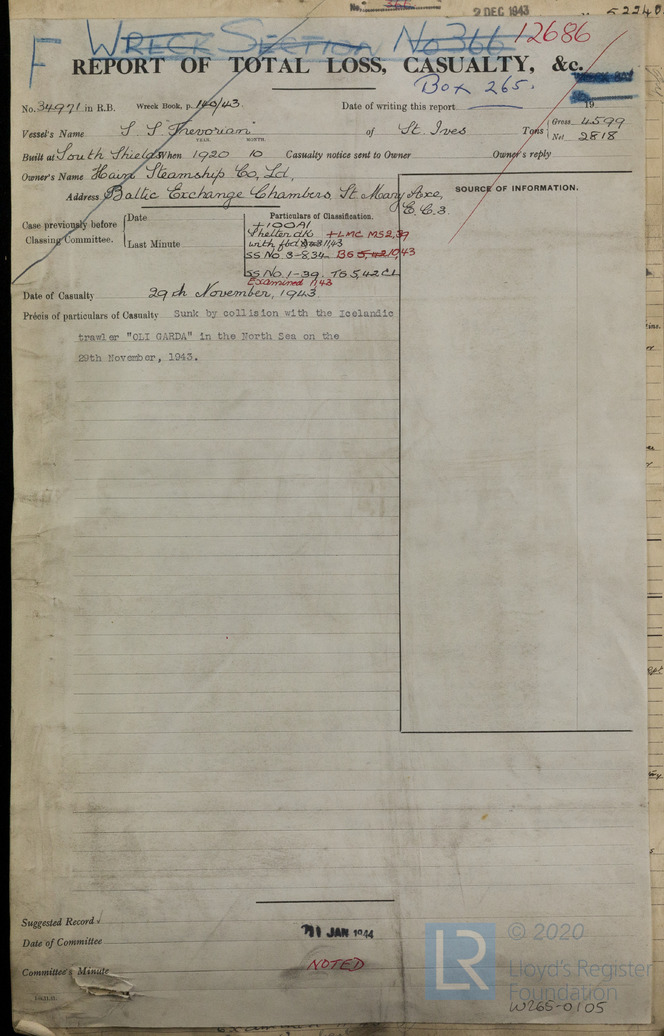 No. 366
2 DEC 1943
F WRECK SECTION No 366 12686
REPORT OF TOTAL LOSS, CASUALTY, &c.
Box 265.
No. 34971 in R.B. Wreck Book, p. 140/43 Date of writing this report 19
Vessel's Name S.S. "Trevorian" of St. Ives Tons Gross 4599
YEAR. MONTH. Net 2818
Built at South Shields When 1920 10 Casualty notice sent to Owner Owner's reply
Owner's Name Hain Steamship Co, Ld,
Address Baltic Exchange Chambers, St Mary Axe,
E.C.3.
SOURCE OF INFORMATION.
Case previously before Classing Committee. Date
Last Minute
Particulars of Classification.
+100A1
Shelter dk +LMC MS2,39
with fbd 11,43
SS No. 3-8,34 BS 5,42 10,43
SS No. 1-39. TS 5,42 CL
Examined 1,43
Date of Casualty 29th November, 1943.
Précis of particulars of Casualty Sunk by collision with the Icelandic
trawler "OLI GARDA" in the North Sea on the
29th November, 1943.
Suggested Record
Date of Committee JAN 1944
Committee's Minute NOTED
© 2020
LR Lloyd's Register
Foundation
W265-0105